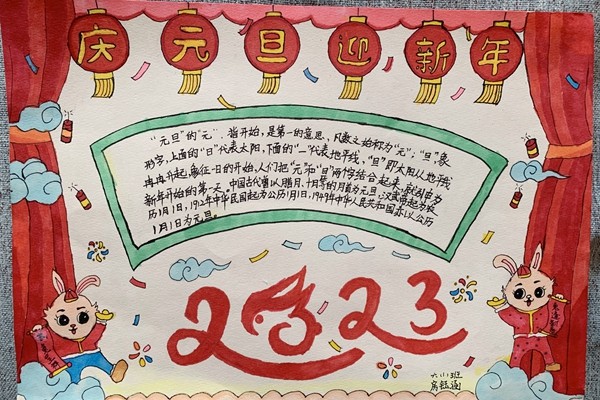 庆元旦迎新年
"元旦"的"元",指开始,是第一的意思,凡数之始称为"元";"旦"象
形字,上面的"日"代表太阳,下面的"一"代表地平线,"旦"即太阳从地平线
冉冉升起,象征一日的开始,人们把"元"和"旦"两个字结合起来,就引申为
新年开始的第一天。中国古代曾以腊月、十月等的月首为元旦,汉武帝起为农
历1月1日,1912年中华民国起为公历1月1日,1949年中华人民共和国亦以公历
1月1日为元旦。
2023
六(1)班